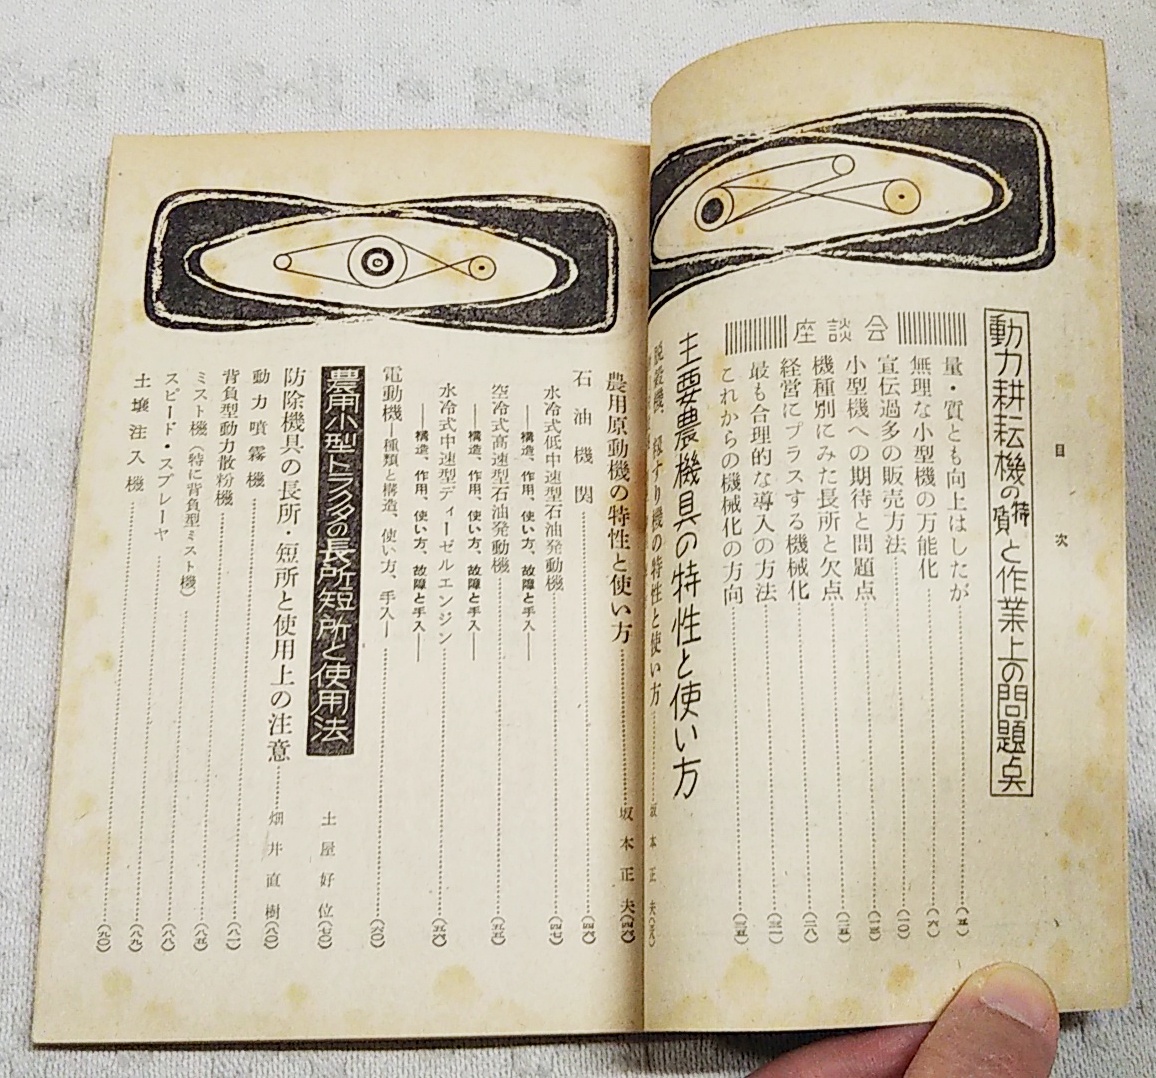 目次
動力耕耘機の特質と作業上の問題点
座談会
量・質とも向上はしたが……(五)
無理な小型機の万能化……(六)
宣伝過多の販売方法……(一〇)
小型機への期待と問題点……(一三)
機種別にみた長所と欠点……(二五)
経営にプラスする機械化……(二八)
最も合理的な導入の方法……(三一)
これからの機械化の方向……(三五)
主要農機具の特性と使い方
脱穀機、籾すり機の特性と使い方……坂本正夫
農用原動機の特性と使い方……坂本正夫(四六)
石油機関……(四六)
水冷式低中速型石油発動機……(四七)
―構造、作用、使い方、故障と手入―
空冷式高速型石油発動機……(五五)
―構造、作用、使い方、故障と手入―
水冷式中速型ディーゼルエンジン……(五六)
―構造、作用、使い方、故障と手入―
電動機―種類と構造、使い方、手入―……(六〇)
農用小型トラクタの長所短所と使用法 土屋好位(七〇)
防除機具の長所・短所と使用上の注意……畑井直樹(八〇)
動力噴霧機……(八一)
背負型動力散粉機……(八五)
ミスト機(特に背負型ミスト機)……(八八)
スピード・スプレーヤ……(八九)
土壌注入機……(九〇)